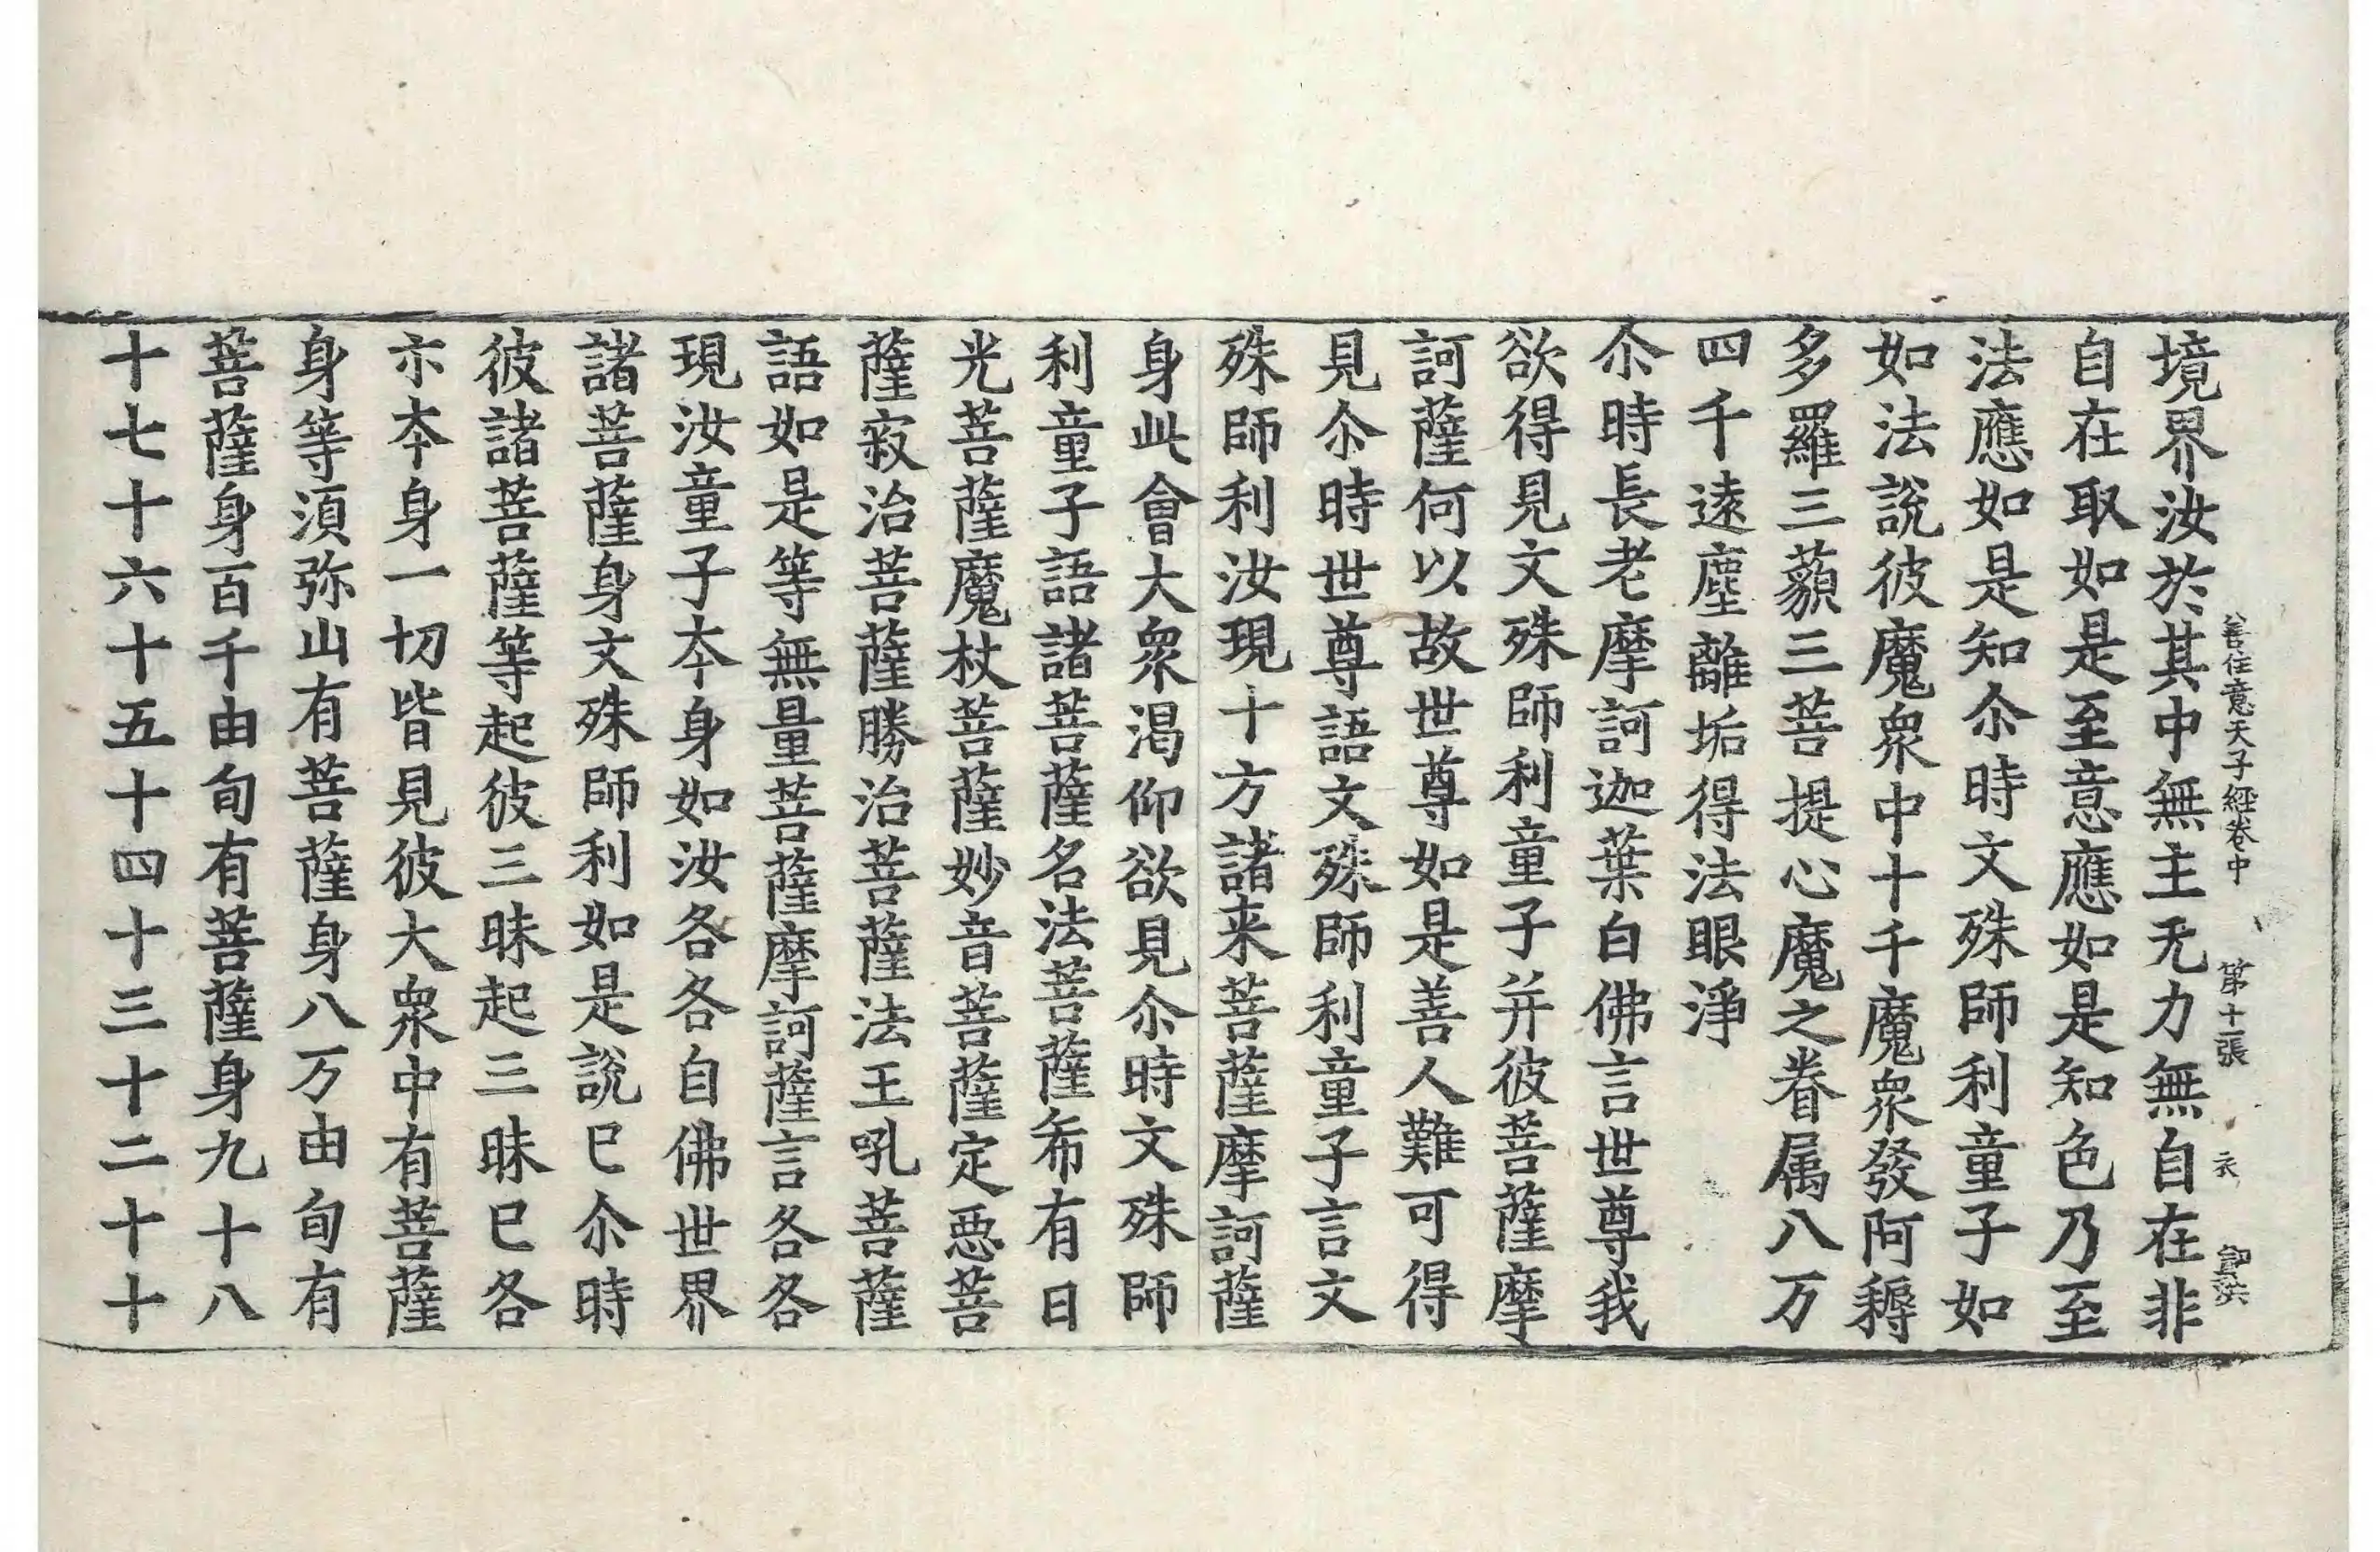 境界汝於其中無主无力無自在非
善住意天子經卷中 第十張 衣
自在取如是至意應如是知色乃至
法應如是知尒時文殊師利童子如
如法說彼魔衆中十千魔衆發阿耨
多羅三藐三菩提心魔之眷属八万
四千遠塵離垢得法眼淨
尒時長老摩訶迦葉白佛言世尊我
欲得見文殊師利童子并彼菩薩摩
訶薩何以故世尊如是善人難可得
見尒時世尊語文殊師利童子言文
殊師利汝現十方諸来菩薩摩訶薩
身此會大衆渇仰欲見尒時文殊師
利童子語諸菩薩名法菩薩希有日
光菩薩魔杖菩薩妙音菩薩定惡菩
薩寂治菩薩勝治菩薩法王吼菩薩
語如是等無量菩薩摩訶薩言各各
現汝童子夲身如汝各各自佛世界
諸菩薩身文殊師利如是說已尒時
彼諸菩薩等起彼三昧起三昧已各
示夲身一切皆見彼大衆中有菩薩
身等湏弥山有菩薩身八万由旬有
菩薩身百千由旬有菩薩身九十八
十七十六十五十四十三十二十十